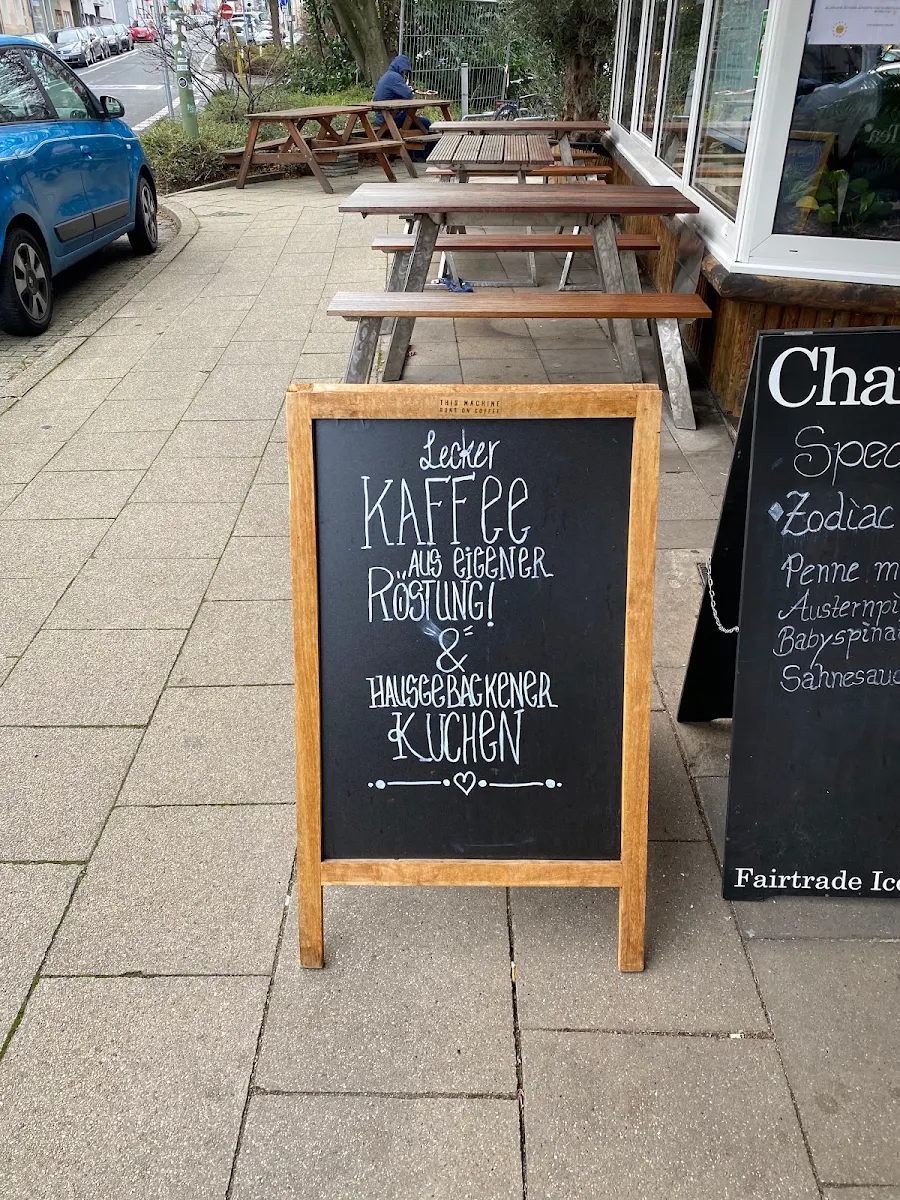 THIS MACHINE
RUNS ON COFFEE
Lecker
KAFFEE
AUS EIGENER
RÖSTUNG!
&
HAUSGEBACKENER
KUCHEN
Cha
Spec
Zodiac
Penne m
Austernpi
Babyspina
Sahnesau
Fairtrade Ice